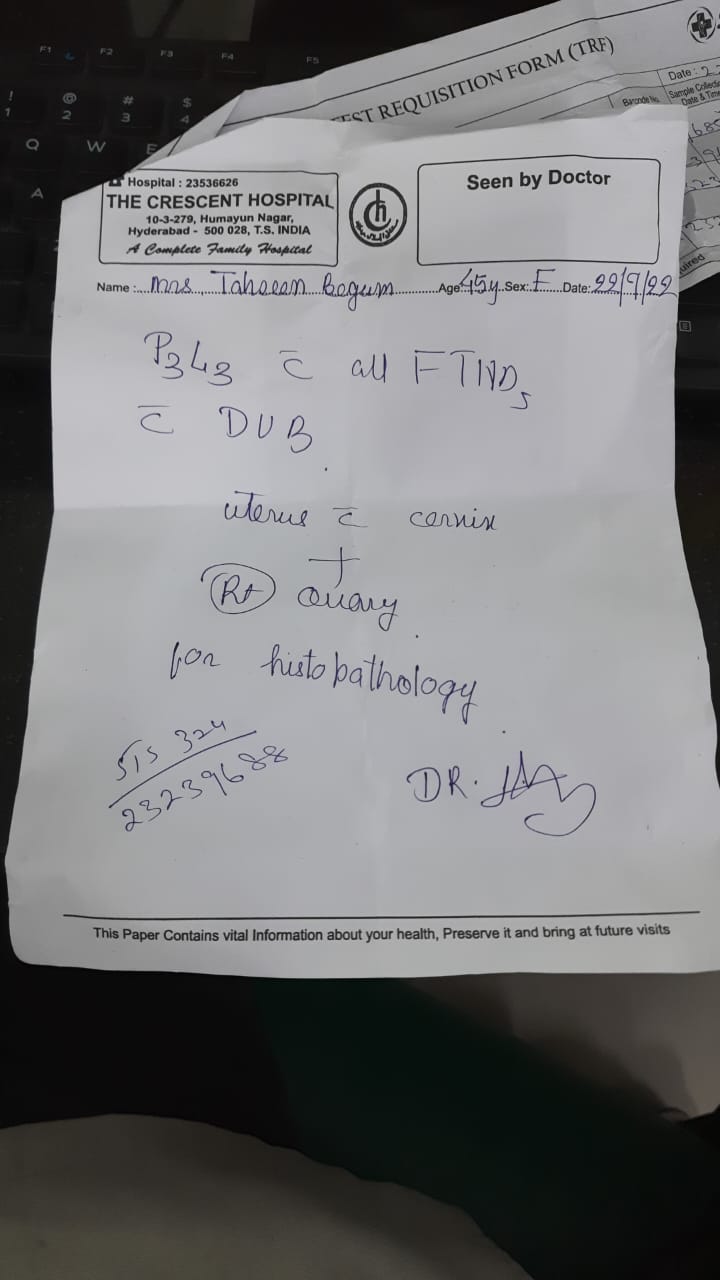 F1 F2 F3 F4 F5
! 1 @ 2 # 3 $ 4
Q W E
A
TEST REQUISITION FORM (TRF)
Date :
Barcode No.
Sample Collection
Date & Time
Hospital : 23536626
THE CRESCENT HOSPITAL
10-3-279, Humayun Nagar,
Hyderabad - 500 028, T.S. INDIA
A Complete Family Hospital
ch
Seen by Doctor
Name :.... Mrs. Taheen Begum ....Age: 45y Sex: F Date: 22/9/22
P3L3 c̄ all FTNDs
c̄ DUB
uterus c̄ cervix
+
Rt ovary
for histopathology
STS 324
23239688
DR.
This Paper Contains vital Information about your health, Preserve it and bring at future visits